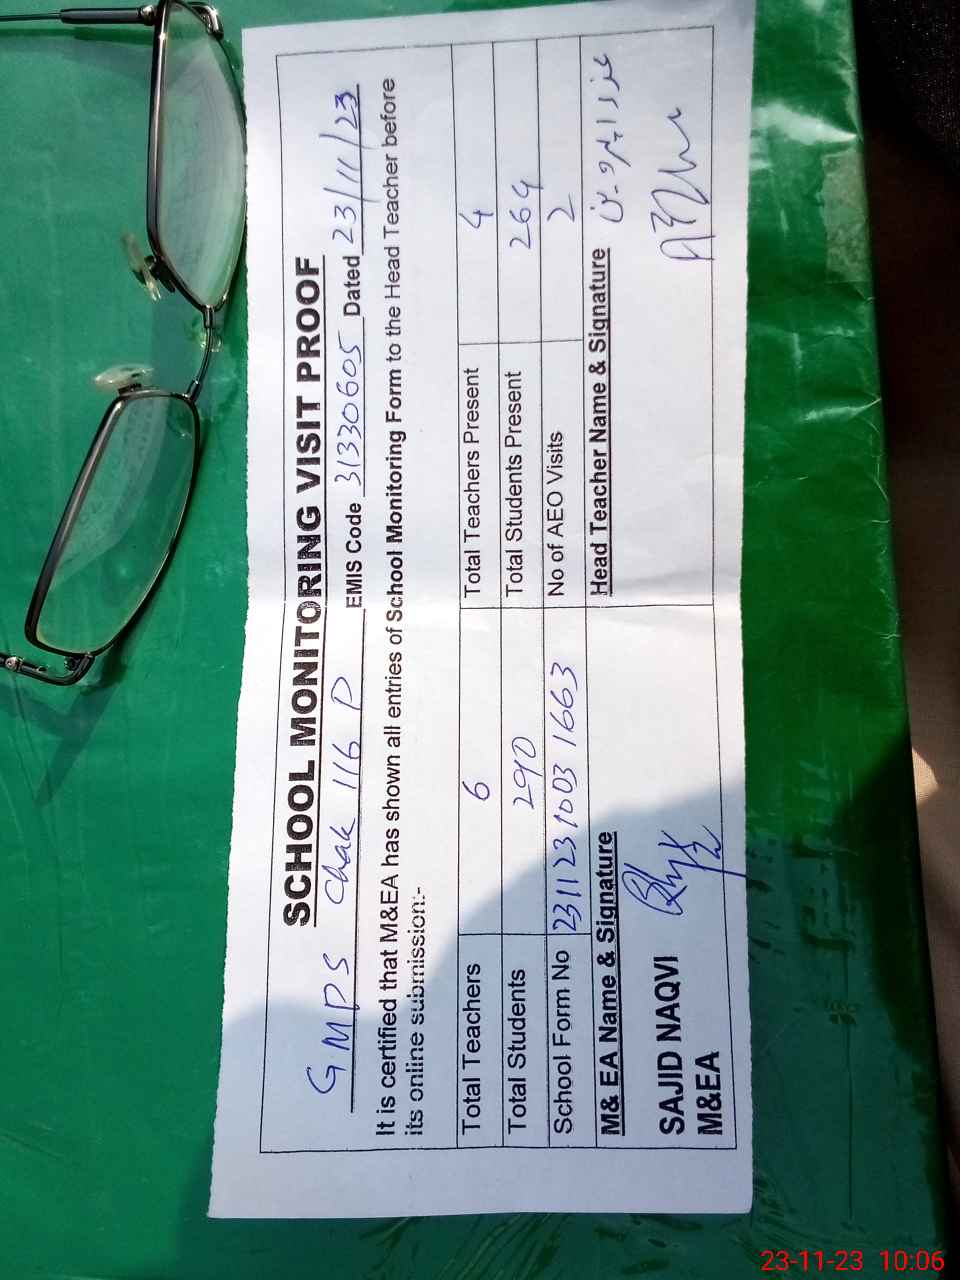 SCHOOL MONITORING VISIT PROOF
GMPS Chak 116 P EMIS Code 31330605 Dated 23/11/23
It is certified that M&EA has shown all entries of School Monitoring Form to the Head Teacher before
its online submission:-
Total Teachers 6 Total Teachers Present 4
Total Students 290 Total Students Present 264
School Form No 231123 1003 1663 No of AEO Visits 2
M& EA Name & Signature Head Teacher Name & Signature
SAJID NAQVI
M&EA
23-11-23 10:06